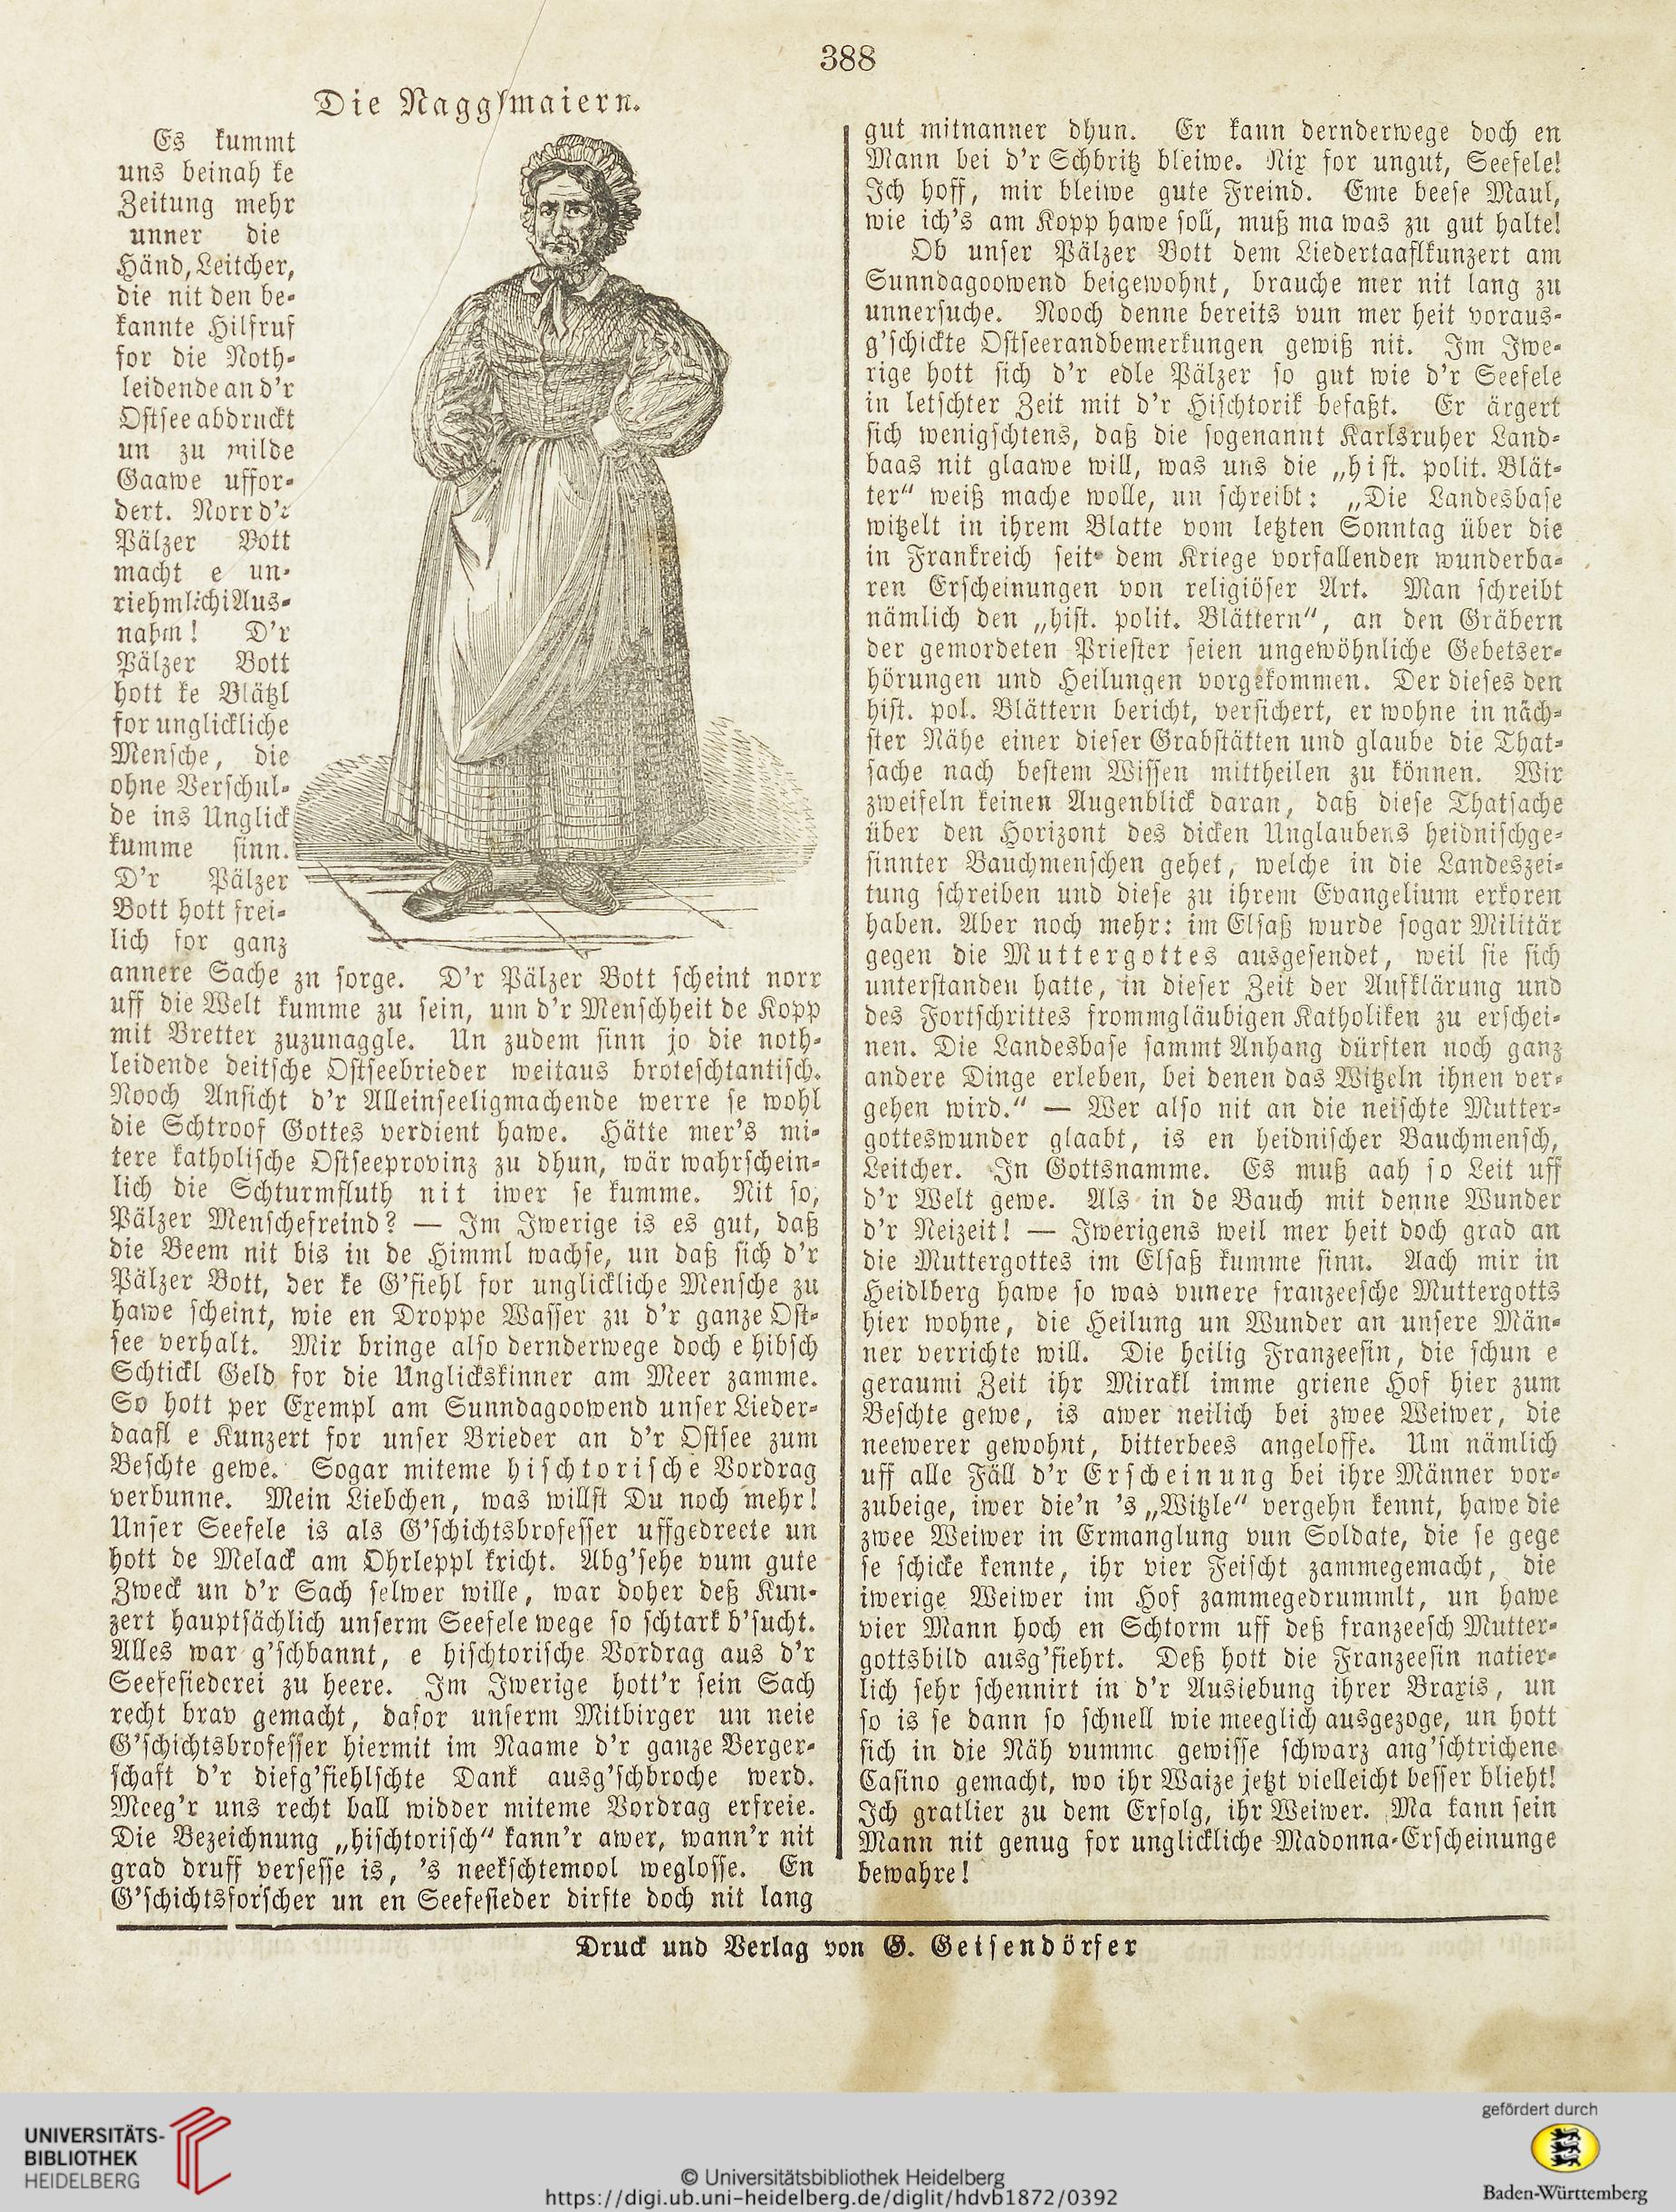 388
Die Naggsmaiern.
Es kummt
uns beinah ke
Zeitung mehr
unner die
Händ, Leitcher,
die nit den be-
kannte Hilfruf
for die Noth-
leidende an d'r
Ostsee abdruckt
un zu milde
Gaawe uffor-
dert. Norr d'r
Pälzer Bott
macht e un-
riehmlichi Aus-
nahm! D'r
Pälzer Bott
hott ke Blätzl
for unglickliche
Mensche, die
ohne Verschul-
de ins Unglick
kumme sinn.
D'r Pälzer
Bott hott frei-
lich for ganz
annere Sache zu sorge. D'r Pälzer Bott scheint norr
uff die Welt kumme zu sein, um d'r Menschheit de Kopp
mit Bretter zuzunaggle. Un zudem sinn jo die noth-
leidende deitsche Ostseebrieder weitaus broteschtantisch.
Nooch Ansicht d'r Alleinseeligmachende werre se wohl
die Schtroof Gottes verdient hawe. Hätte mer's mi-
tere katholische Ostseeprovinz zu dhun, wär wahrschein-
lich die Schturmfluth nit iwer se kumme. Nit so,
Pälzer Menschefreind? — Im Iwerige is es gut, daß
die Beem nit bis in de Himml wachse, un daß sich d'r
Pälzer Bott, der ke G'fiehl for unglickliche Mensche zu
hawe scheint, wie en Droppe Wasser zu d'r ganze Ost-
see verhalt. Mir bringe also dernderwege doch e hibsch
Schtickl Geld for die Unglickskinner am Meer zamme.
So hott per Exempl am Sunndagoowend unser Lieder-
daafl e Kunzert for unser Brieder an d'r Ostsee zum
Beschte gewe. Sogar miteme hischtorische Vordrag
verbunne. Mein Liebchen, was willst Du noch mehr!
Unser Seefele is als G'schichtsbrofesser uffgedreete un
hott de Melack am Ohrleppl kricht. Abg'sehe vum gute
Zweck un d'r Sach selwer wille, war doher deß Kun-
zert hauptsächlich unserm Seefele wege so schtark b'sucht.
Alles war g'schbannt, e hischtorische Vordrag aus d'r
Seefesiederei zu heere. Im Iwerige hott'r sein Sach
recht brav gemacht, dafor unserm Mitbirger un neie
G'schichtsbrofesser hiermit im Naame d'r ganze Berger-
schaft d'r diefg'fiehlschte Dank ausg'schbroche werd.
Meeg'r uns recht ball widder miteme Vordrag erfreie.
Die Bezeichnung „hischtorisch“ kann'r awer, wann'r nit
grad druff versesse is, 's neekschtemool weglosse. En
G'schichtsforscher un en Seefesieder dirfte doch nit lang
gut mitnanner dhun. Er kann dernderwege doch en
Mann bei d'r Schbritz bleiwe. Nix for ungut, Seefele!
Ich hoff, mir bleiwe gute Freind. Eme beese Maul,
wie ich's am Kopp hawe soll, muß ma was zu gut halte!
Ob unser Pälzer Bott dem Liedertaaflkunzert am
Sunndagoowend beigewohnt, brauche mer nit lang zu
unnersuche. Nooch denne bereits vun mer heit voraus-
g'schickte Ostseerandbemerkungen gewiß nit. Im Iwe-
rige hott sich d'r edle Pälzer so gut wie d'r Seefele
in letschter Zeit mit d'r Hischtorik befaßt. Er ärgert
sich wenigschtens, daß die sogenannt Karlsruher Land-
baas nit glaawe will, was uns die „hist. polit. Blät-
ter“ weiß mache wolle, un schreibt: „Die Landesbase
witzelt in ihrem Blatte vom letzten Sonntag über die
in Frankreich seit dem Kriege vorfallenden wunderba-
ren Erscheinungen von religiöser Art. Man schreibt
nämlich den „hist. polit. Blättern“, an den Gräbern
der gemordeten Priester seien ungewöhnliche Gebetser-
hörungen und Heilungen vorgekommen. Der dieses den
hist. pol. Blättern bericht, versichert, er wohne in näch-
ster Nähe einer dieser Grabstätten und glaube die That-
sache nach bestem Wissen mittheilen zu können. Wir
zweifeln keinen Augenblick daran, daß diese Thatsache
über den Horizont des dicken Unglaubens heidnischge-
sinnter Bauchmenschen gehet, welche in die Landeszei-
tung schreiben und diese zu ihrem Evangelium erkoren
haben. Aber noch mehr: im Elsaß wurde sogar Militär
gegen die Muttergottes ausgesendet, weil sie sich
unterstanden hatte, in dieser Zeit der Aufklärung und
des Fortschrittes frommgläubigen Katholiken zu erschei-
nen. Die Landesbase sammt Anhang dürften noch ganz
andere Dinge erleben, bei denen das Witzeln ihnen ver-
gehen wird.“ — Wer also nit an die neischte Mutter-
gotteswunder glaabt, is en heidnischer Bauchmensch,
Leitcher. In Gottsnamme. Es muß aah so Leit uff
d'r Welt gewe. Als in de Bauch mit denne Wunder
d'r Neizeit! — Iwerigens weil mer heit doch grad an
die Muttergottes im Elsaß kumme sinn. Aach mir in
Heidlberg hawe so was vunere franzeesche Muttergotts
hier wohne, die Heilung un Wunder an unsere Män-
ner verrichte will. Die heilig Franzeesin, die schun e
geraumi Zeit ihr Mirakl imme griene Hof hier zum
Beschte gewe, is awer neilich bei zwee Weiwer, die
neewerer gewohnt, bitterbees angeloffe. Um nämlich
uff alle Fäll d'r Erscheinung bei ihre Männer vor-
zubeige, iwer die'n 's „Witzle“ vergehn kennt, hawe die
zwee Weiwer in Ermanglung vun Soldate, die se gege
se schicke kennte, ihr vier Feischt zammegemacht, die
iwerige Weiwer im Hof zammegedrummlt, un hawe
vier Mann hoch en Schtorm uff deß franzeesch Mutter-
gottsbild ausg'fiehrt. Deß hott die Franzeesin natier-
lich sehr schennirt in d'r Ausiebung ihrer Braxis, un
so is se dann so schnell wie meeglich ausgezoge, un hott
sich in die Näh vumme gewisse schwarz ang'schtrichene
Casino gemacht, wo ihr Waize jetzt vielleicht besser blieht!
Ich gratlier zu dem Erfolg, ihr Weiwer. Ma kann sein
Mann nit genug for unglickliche Madonna-Erscheinunge
bewahre!
Druck und Verlag von G. Geisendörfer
UNIVERSITÄTS-
BIBLIOTHEK
HEIDELBERG
© Universitätsbibliothek Heidelberg
https://digi.ub.uni-heidelberg.de/diglit/hdvb1872/0392
gefördert durch
Baden-Württemberg